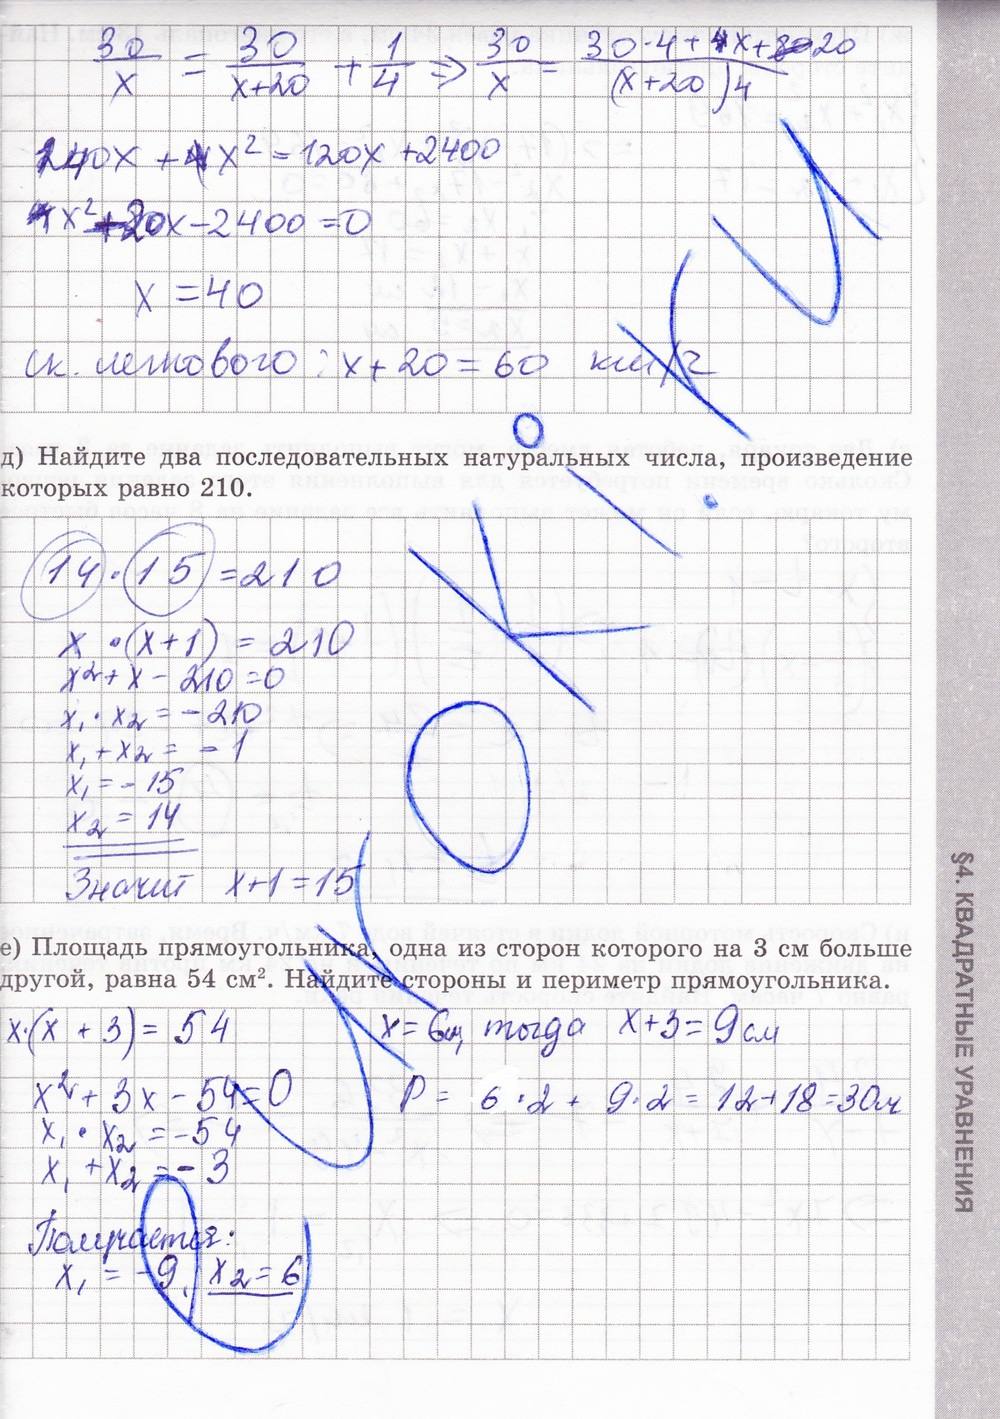 30/x = 30/(x+20) + 1/4 => 30/x = (30·4+x+20)/((x+20)4)
140x + x² = 120x + 2400
x² + 20x - 2400 = 0
x = 40
ск. легкового: x + 20 = 60 км/г
д) Найдите два последовательных натуральных числа, произведение
которых равно 210.
14 · 15 = 210
x · (x+1) = 210
x² + x - 210 = 0
x₁ · x₂ = -210
x₁ + x₂ = -1
x₁ = -15
x₂ = 14
Значит x+1 = 15
е) Площадь прямоугольника, одна из сторон которого на 3 см больше
другой, равна 54 см². Найдите стороны и периметр прямоугольника.
x·(x + 3) = 54 x = 6см, тогда x+3 = 9 см
x² + 3x - 54 = 0 P = 6·2 + 9·2 = 12+18 = 30
x₁ · x₂ = -54
x₁ + x₂ = -3
Получается:
x₁ = -9, x₂ = 6
§4. КВАДРАТНЫЕ УРАВНЕНИЯ
UROKI.RU